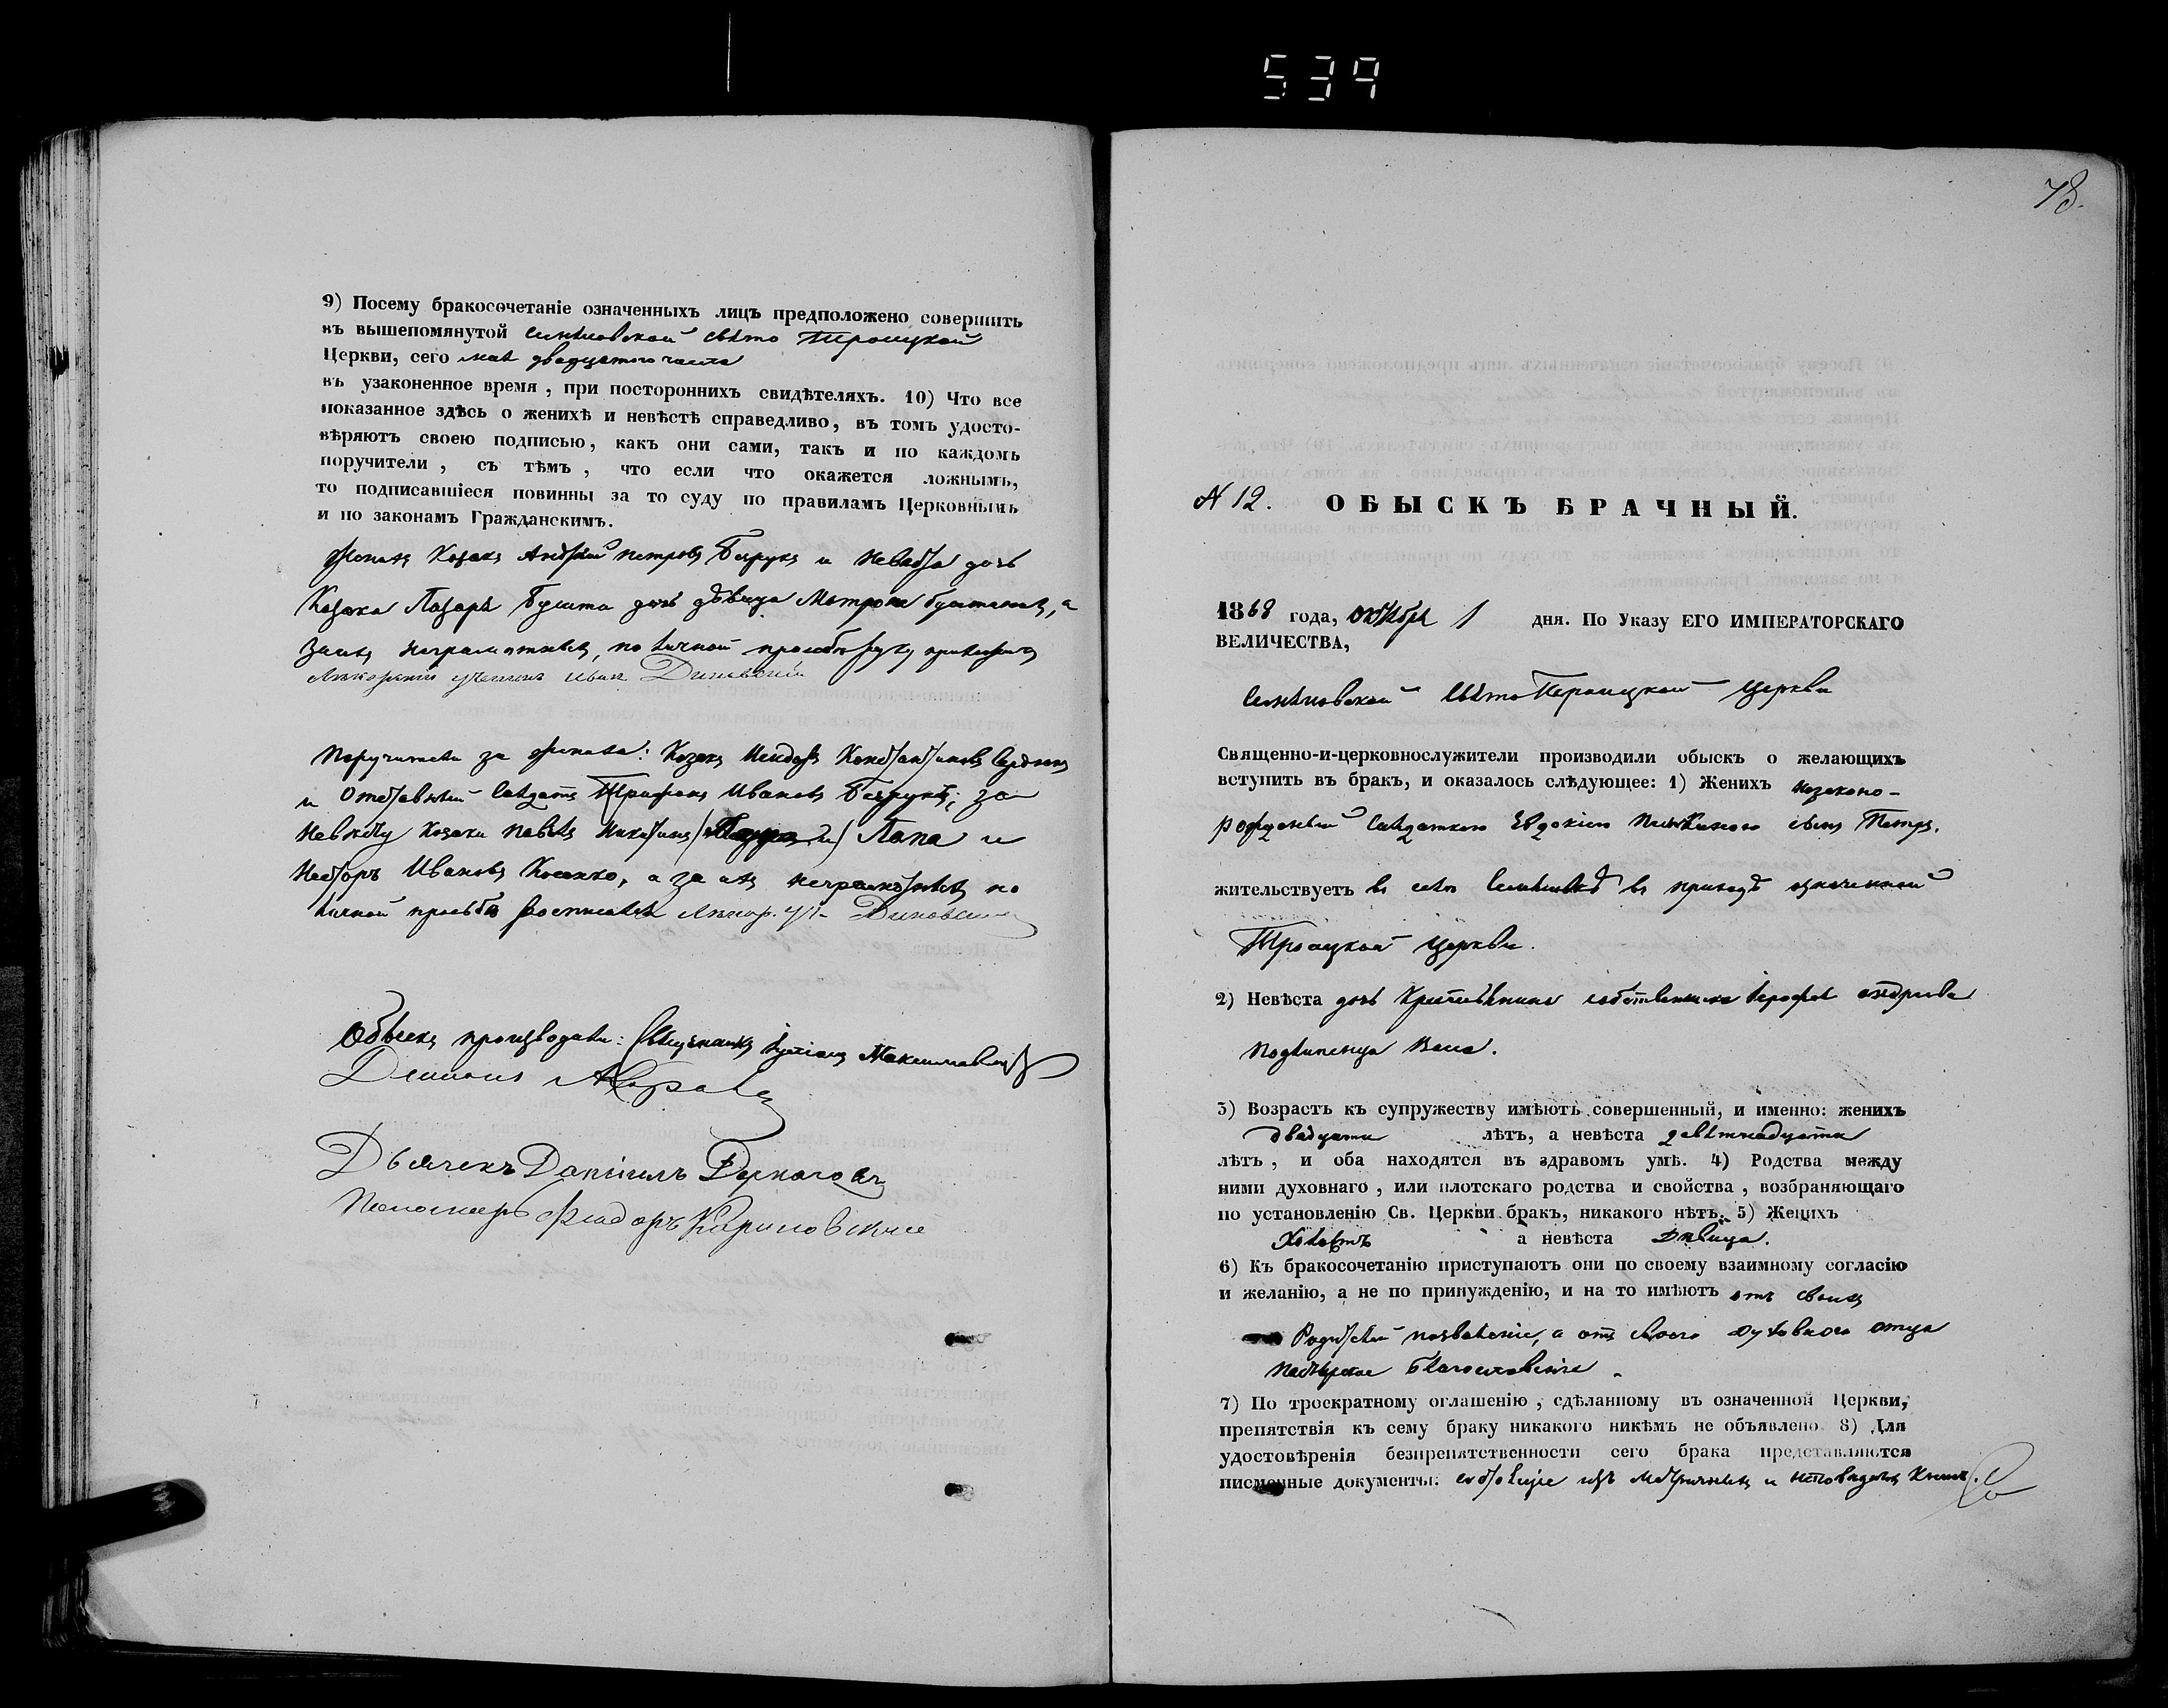 539
9) Посему бракосочетаніе означенныхъ лицъ предположено совершить
въ вышепомянутой Свято Троицкой
Церкви, сего мая двадцатого числа
въ узаконенное время, при постороннихъ свидѣтеляхъ. 10) Что все
показанное здѣсь о женихѣ и невѣстѣ справедливо, въ томъ удосто-
вѣряютъ своею подписью, какъ они сами, такъ и по каждомъ
поручители, съ тѣмъ, что если что окажется ложнымъ,
то подписавшіеся повинны за то суду по правиламъ Церковнымъ
и по законамъ Гражданскимъ.
Женихъ Козакъ Андрей Петровъ и Невѣста дочь
Козака Лазаря дочь дѣвица Матрона а
за ихъ неграмотныхъ, по личной просьбѣ руку приложилъ
Иванъ
Поручители за жениха: Козакъ
и Отставной Солдатъ Трифонъ Ивановъ за
Невѣсту Козаки Павелъ Папа и
Несторъ Ивановъ Косенко, а за ихъ неграмотныхъ по
личной просьбѣ росписался
Обыскъ производили: Священникъ Максимовичъ
Дьячекъ Даніилъ
Пономарь Феодоръ
78.
N 12. ОБЫСКЪ БРАЧНЫЙ.
1868 года, Октября 1 дня. По Указу ЕГО ИМПЕРАТОРСКАГО
ВЕЛИЧЕСТВА,
Свято Троицкой Церкви
Священно-и-церковнослужители производили обыскъ о желающихъ
вступить въ бракъ, и оказалось слѣдующее: 1) Женихъ незаконо-
рожденный солдаткою Евдокіею сынъ Петръ.
жительствуетъ въ селѣ въ приходѣ означенной
Троицкой Церкви.
2) Невѣста дочь собственника Ерофея Андреева
3) Возрастъ къ супружеству имѣютъ совершенный, и именно: женихъ
двадцати лѣтъ, а невѣста девятнадцати
лѣтъ, и оба находятся въ здравомъ умѣ. 4) Родства между
ними духовнаго, или плотскаго родства и свойства, возбраняющаго
по установленію Св. Церкви бракъ, никакого нѣтъ. 5) Женихъ
Холостъ а невѣста Дѣвица.
6) Къ бракосочетанію приступаютъ они по своему взаимному согласію
и желанію, а не по принужденію, и на то имѣютъ отъ своихъ
Родителей позволеніе, а отъ своего духовнаго отца
пастырское благословеніе.
7) По троекратному оглашенію, сдѣланному въ означенной Церкви,
препятствія къ сему браку никакого никѣмъ не объявлено. 8) Для
удостовѣренія безпрепятственности сего брака представляются
письменные документы: изъ метричныхъ и исповѣдныхъ Книгъ.